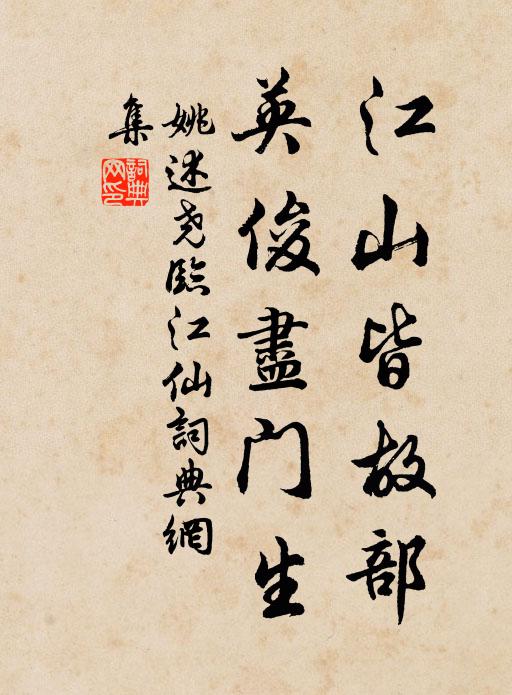 江山皆故部
英俊盡门生
姚述尧臨江仙詞典網
集
詞典网印